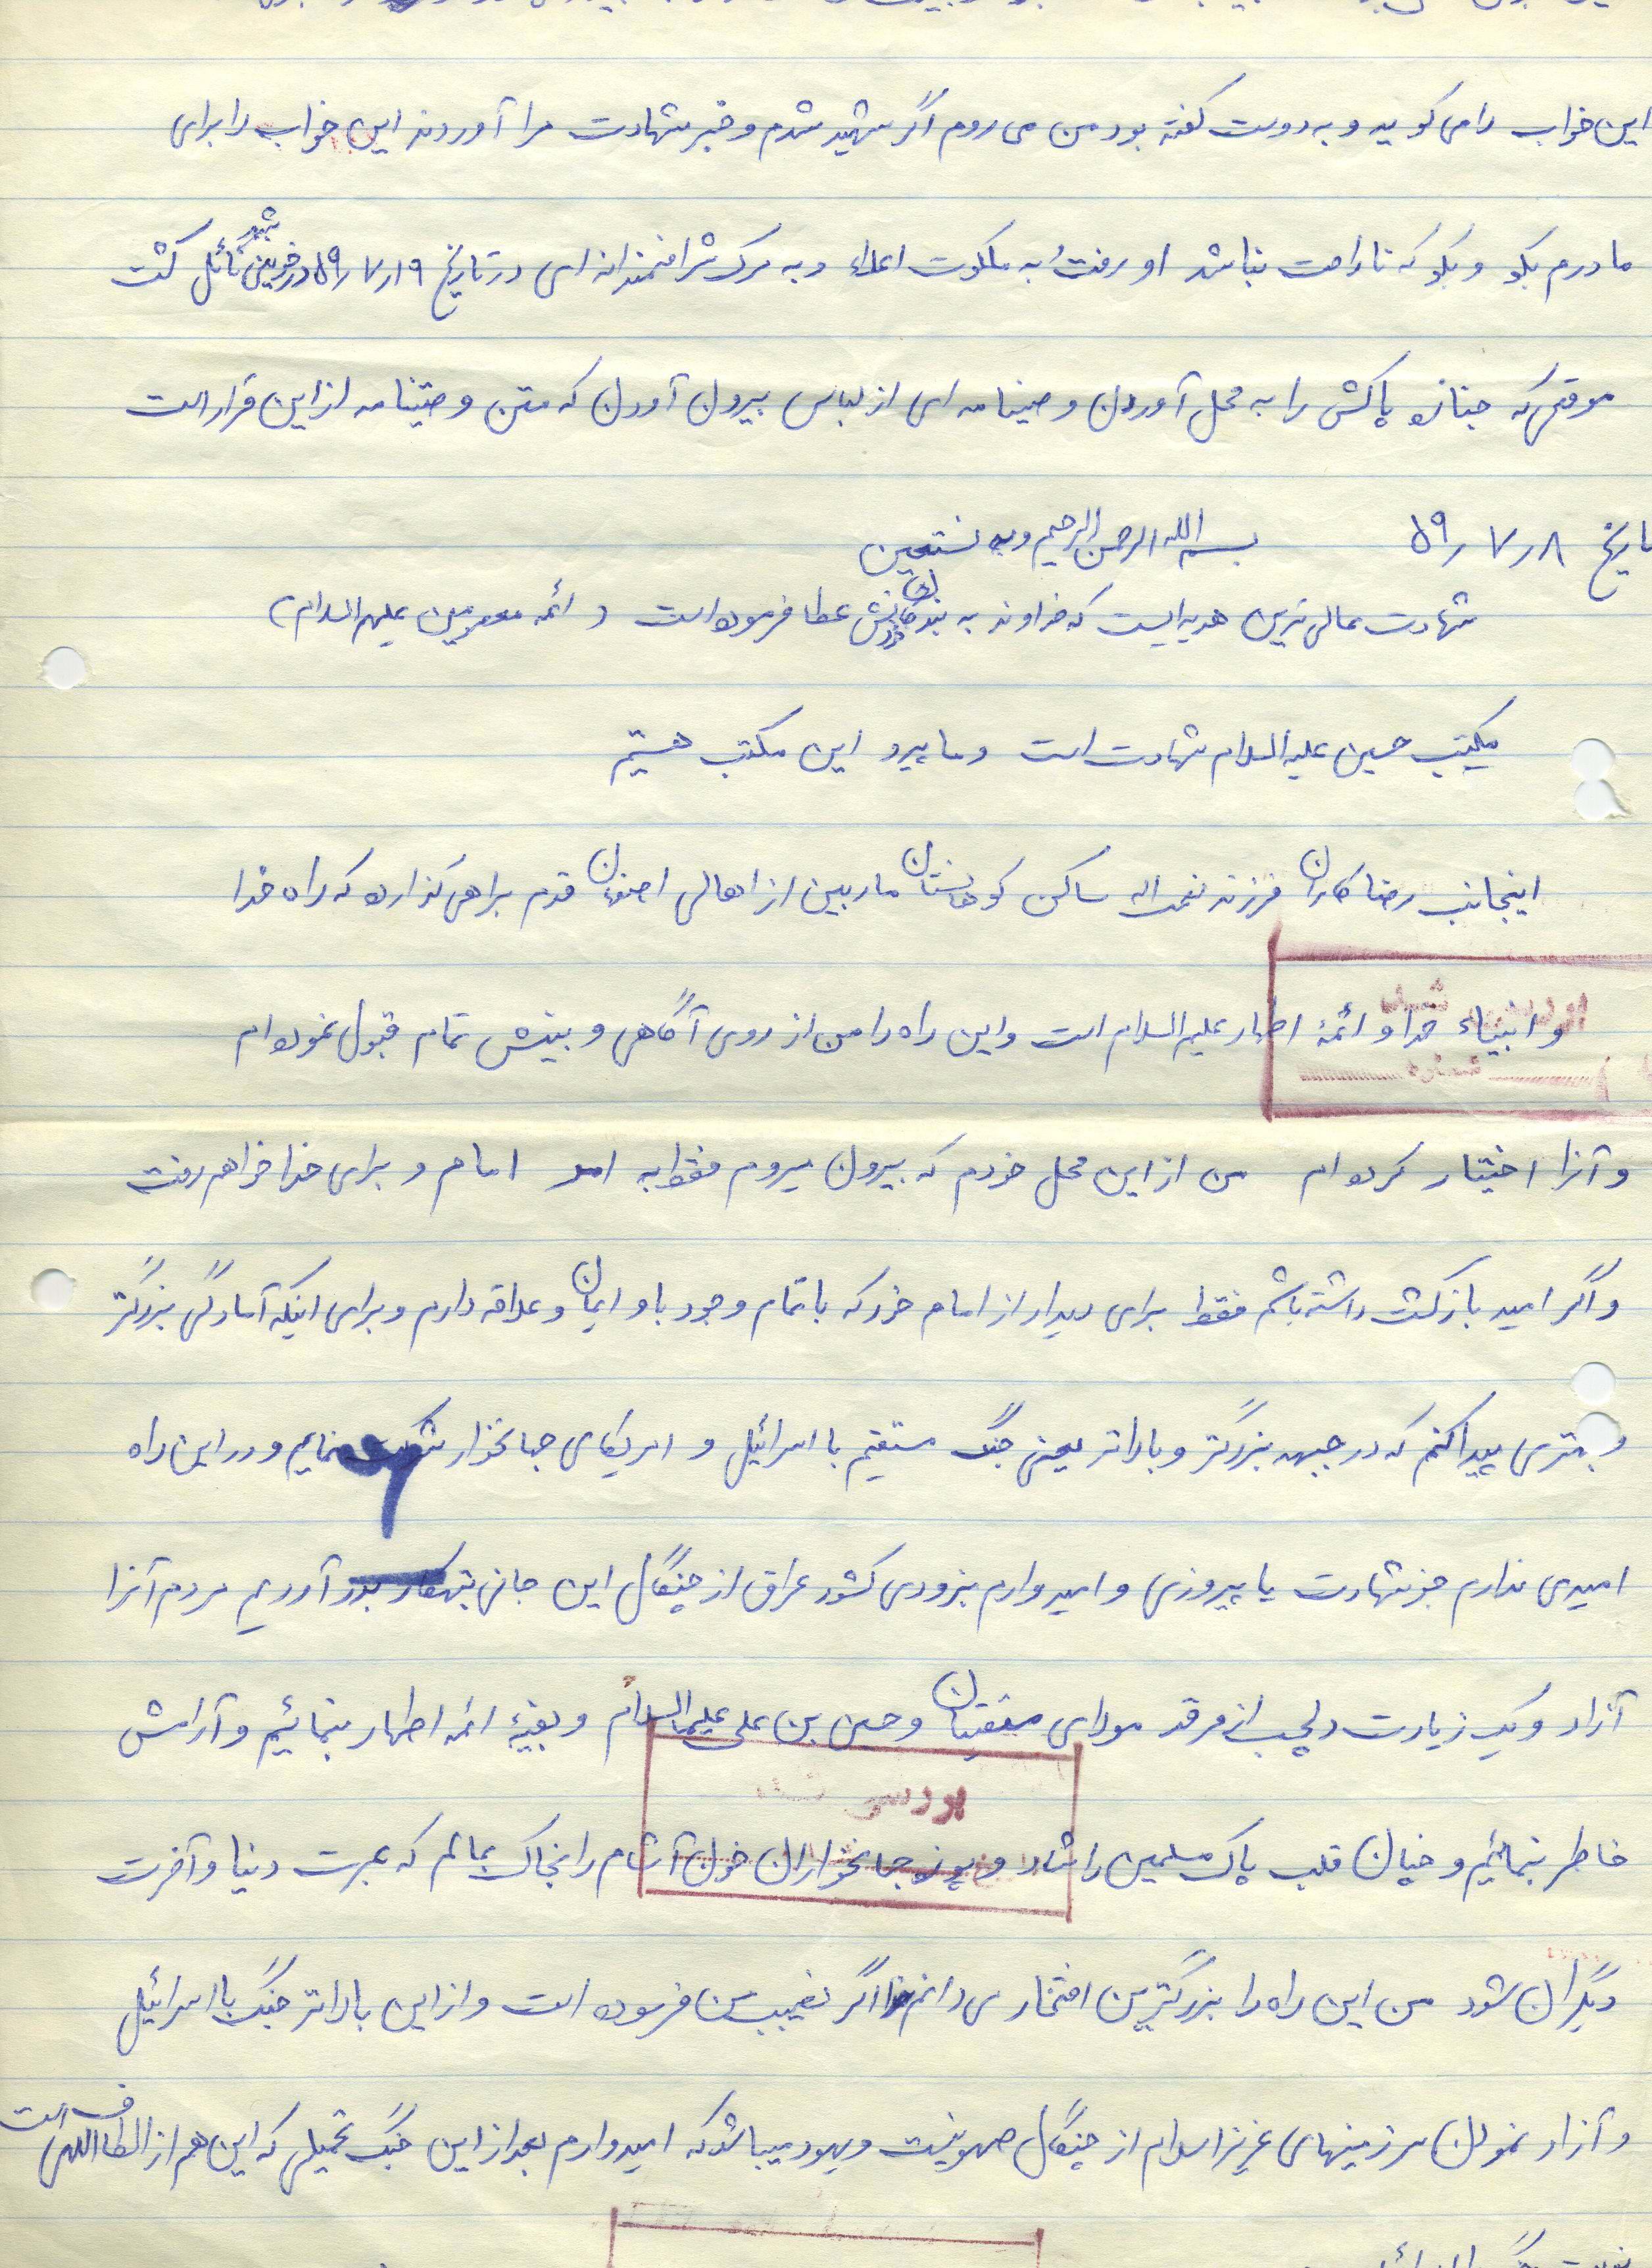 این خواب را می گوید و به دوست گفته بود من می روم اگر شهید شدم و خبر شهادت مرا آوردند این خواب را برای
مادرم بگو و بگو که ناراحت نباشد او رفت به ملکوت اعلاء و به مرگ شرافتمندانه ای در تاریخ ۵۹/۷/۱۹ در خونین شهر نائل گشت
موقعی که جنازه پاکش را به محل آوردن وصیتنامه ای از لباس بیرون آوردن که متن وصیتنامه از این قرار است
تاریخ ۵۹/۷/۸ بسم الله الرحمن الرحیم و به نستعین
شهادت عالی ترین هدیه ایست که خداوند به بندگان خودش عطا فرموده است (ائمه معصومین علیهم السلام)
مکتب حسین علیه السلام شهادت است و ما پیرو این مکتب هستیم
اینجانب رضا کاران فرزند نعمت اله ساکن کوهانستان ماربین از اهالی اصفهان قدم براهی گذارده که راه خدا
و انبیاء خدا و ائمهٔ اطهار علیهم السلام است و این راه را من از روی آگاهی و بینش تمام قبول نموده ام
بررسی شد
شماره
و آنرا اختیار کرده ام من از این محل خودم که بیرون میروم فقط به امر امام و برای خدا خواهم رفت
و اگر امید بازگشت داشته باشم فقط برای دیدار از امام خود که با تمام وجود باو ایمان و علاقه دارم و برای اینکه آمادگی بزرگتر
و بهتری پیدا کنم که در جبهه بزرگتر و بالاتر یعنی جنگ مستقیم با اسرائیل و امریکای جهانخوار شرکت نمایم و در این راه
امیدی ندارم جز شهادت یا پیروزی و امیدوارم بزودی کشور عراق از چنگال این جانی تبهکار بدر آوریم مردم آنرا
آزاد و یک زیارت دلچسب از مرقد مولای متقیان و حسین بن علی علیهما السلام و بقیهٔ ائمه اطهار بنمائیم و آرامش
خاطر بنمائیم و چنان قلب پاک مسلمین را شاد و پوزه جهانخواران خون آشام را بخاک بمالم که عبرت دنیا و آخرت
بررسی شد
دیگران شود من این راه را بزرگترین افتخار می دانم اگر نصیب من فرموده است و از این بالاتر جنگ با اسرائیل
و آزاد نمودن سرزمینهای عزیز اسلام از چنگال صهیونیست و یهود میباشد که امیدوارم بعد از این جنگ تحمیلی که این هم از الطاف الهی است